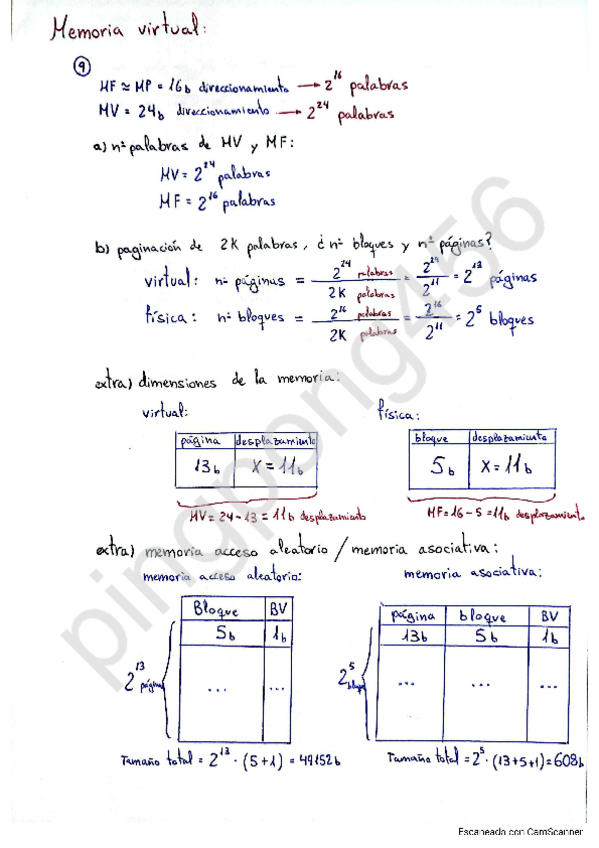 Memoria virtual:
9
MF ≃ MP = 16b direccionamiento → 2^16 palabras
MV = 24b direccionamiento → 2^24 palabras
a) nº palabras de MV y MF:
MV = 2^24 palabras
MF = 2^16 palabras
b) paginación de 2K palabras, ¿ nº bloques y nº páginas?
virtual: nº páginas = 2^24 palabras / 2K palabras = 2^24 / 2^11 = 2^13 páginas
física: nº bloques = 2^16 palabras / 2K palabras = 2^16 / 2^11 = 2^5 bloques
extra) dimensiones de la memoria:
virtual: física:
página desplazamiento bloque desplazamiento
13b X = 11b 5b X = 11b
MV = 24 - 13 = 11b desplazamiento MF = 16 - 5 = 11b desplazamiento
extra) memoria acceso aleatorio / memoria asociativa:
memoria acceso aleatorio: memoria asociativa:
Bloque BV página bloque BV
5b 1b 13b 5b 1b
2^13 páginas ... ... 2^5 bloques ... ... ...
Tamaño total = 2^13 · (5+1) = 49152b Tamaño total = 2^5 · (13+5+1) = 608b
pingpong456
Escaneado con CamScanner